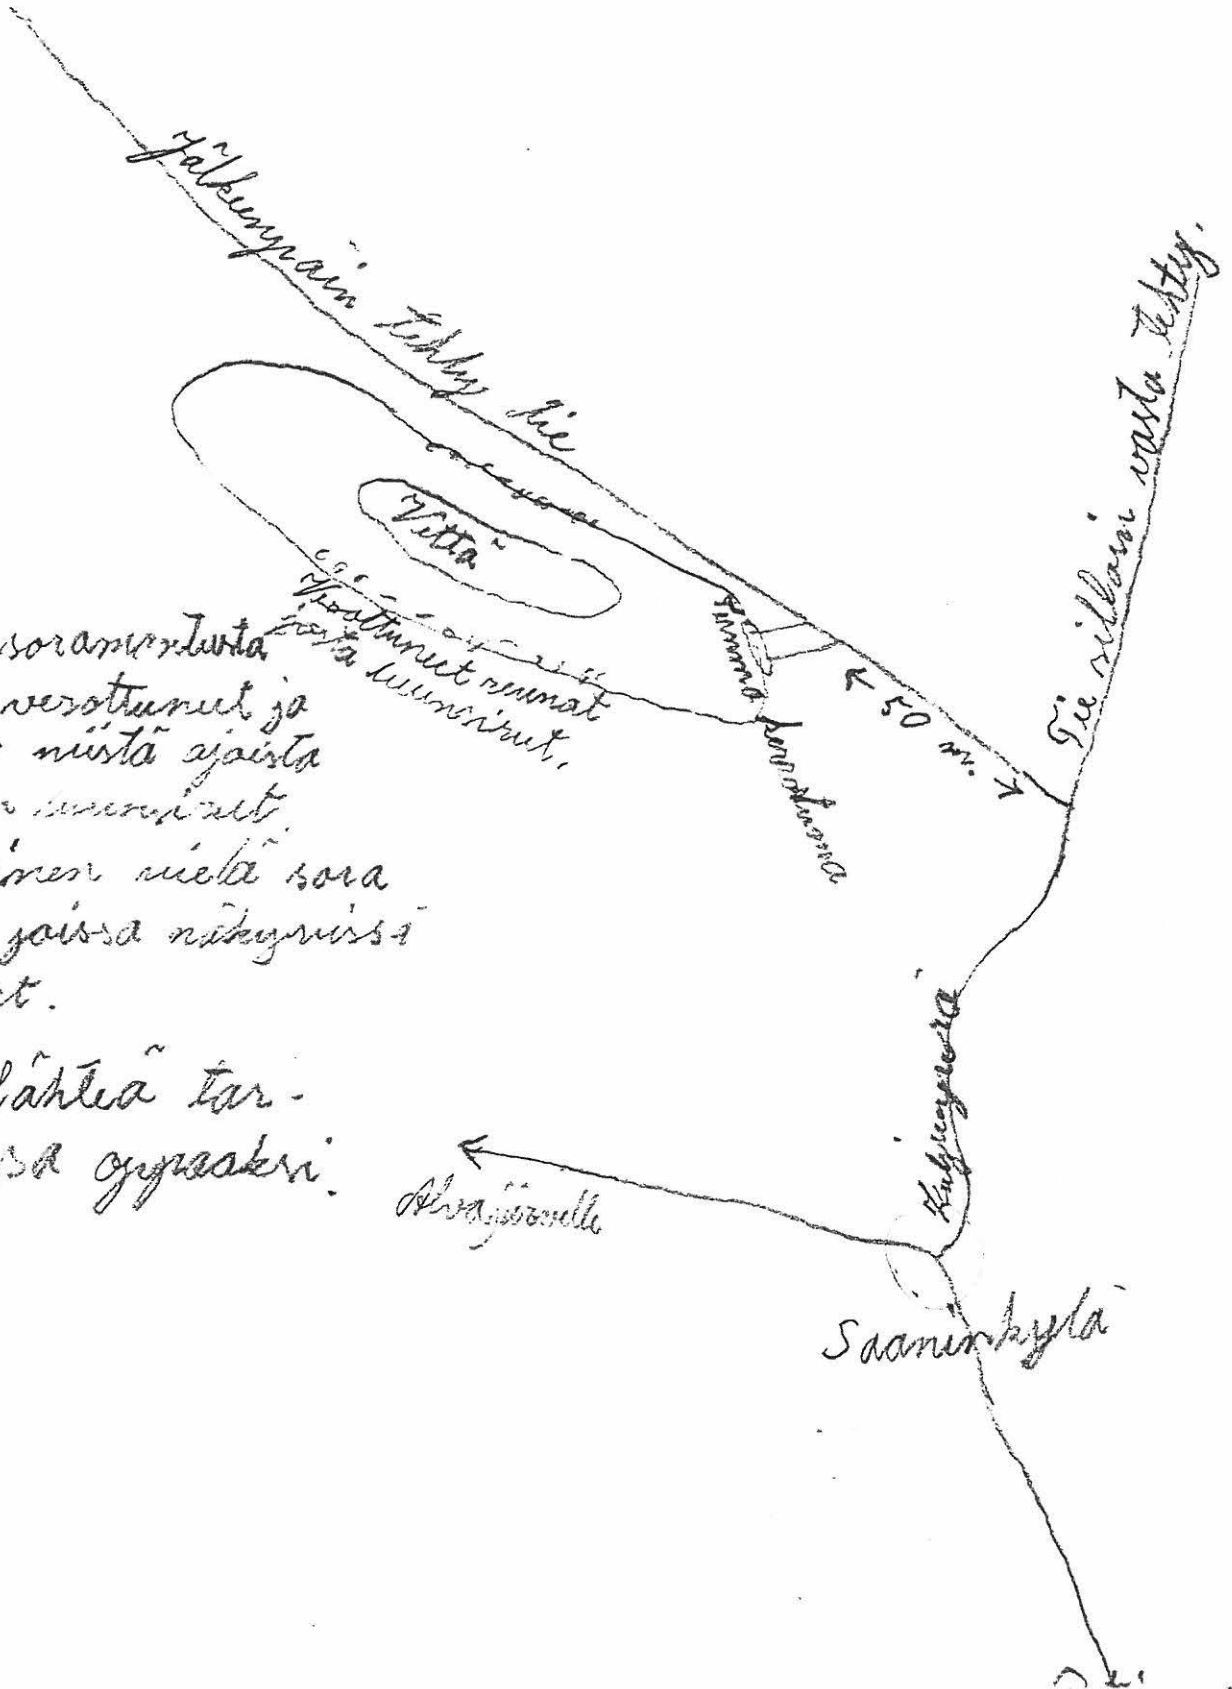 Jälkeenpäin tehty tie
Tie silloin vasta tehty.
Vettä
Vesottuneet reunat
josta luunsirut.
Tumma kerrostuma
← 50 m. →
soramontusta
vesottunut ja
niistä ajoista
luunsirut
inen vielä sora
joissa näkyvissä
t.
lähteä tar-
sa oppaaksi.
Alvajärvelle
Saaninkylä